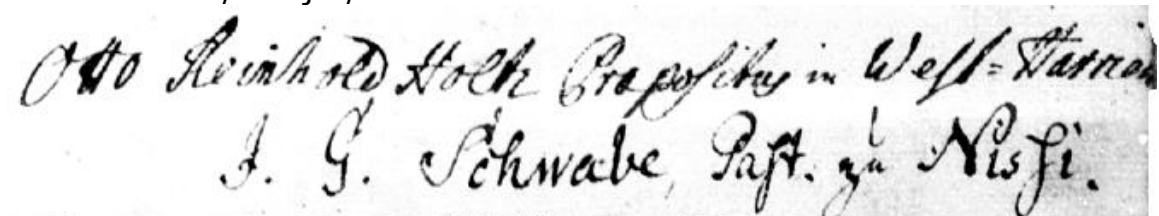 Otto Reinhold Holtz Præpositus in West-Harrien
J. G. Schwabe, Past. zu Nissi.